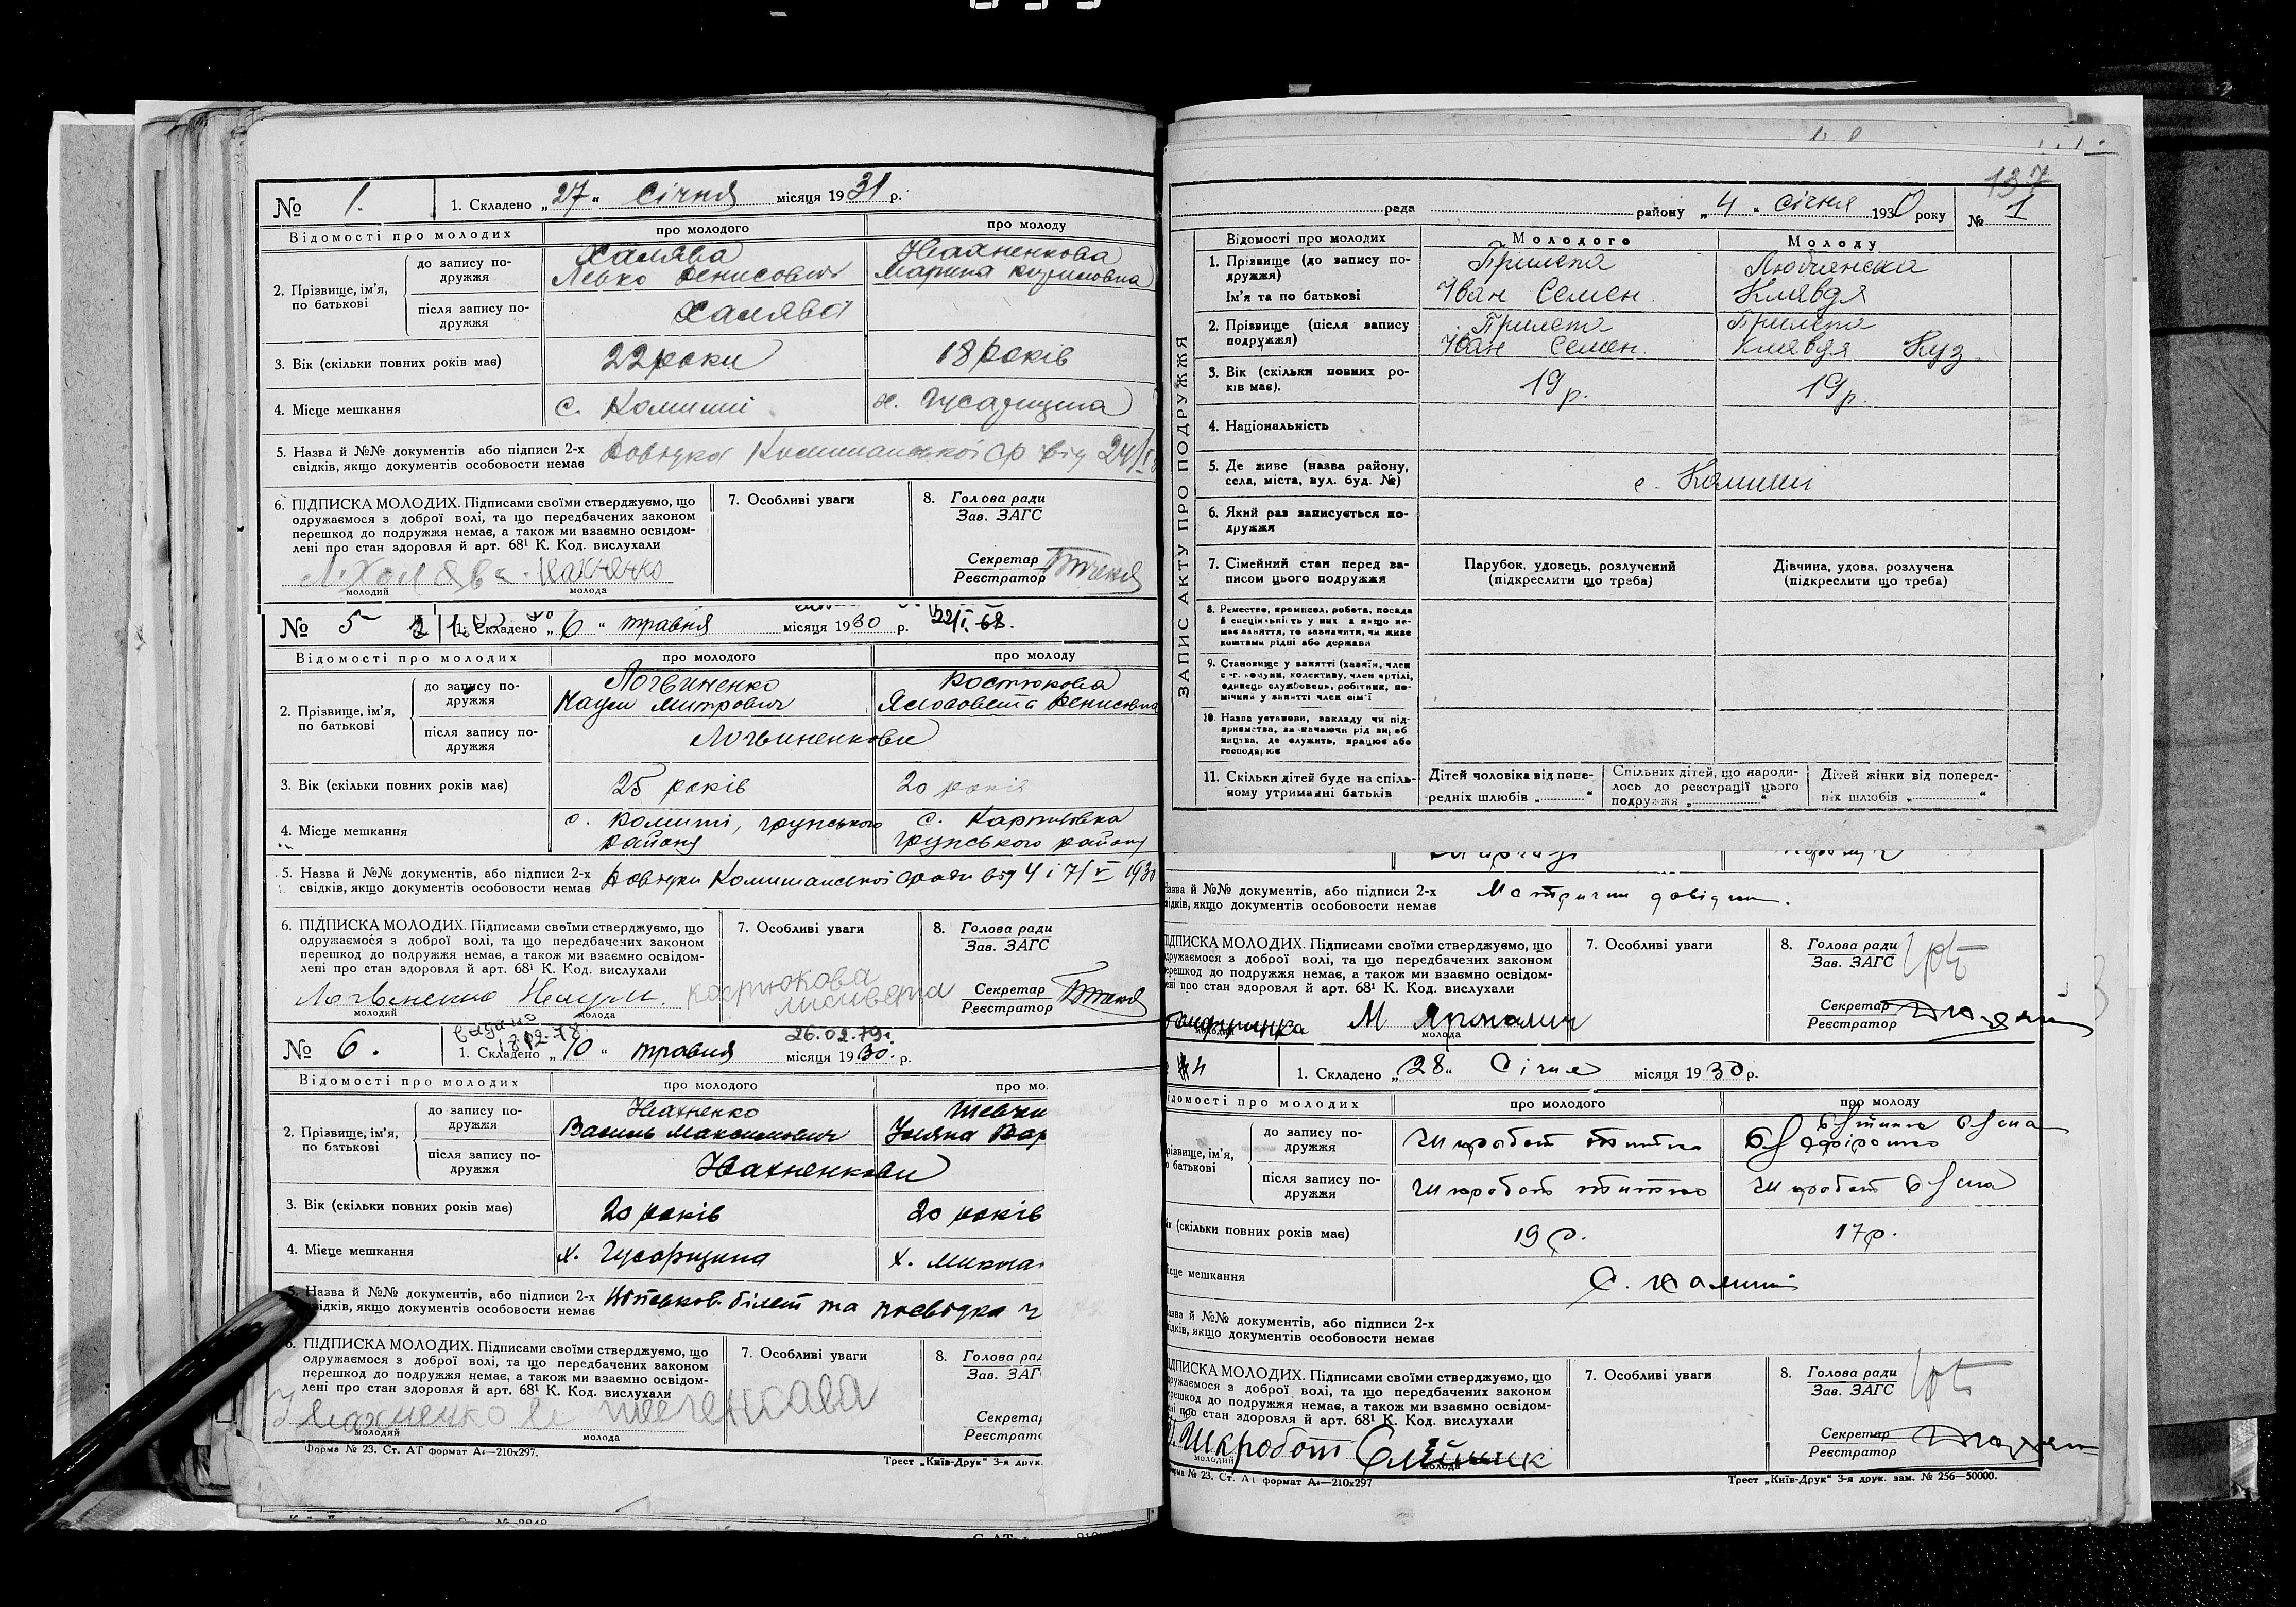 № 1. 1. Складено „27“ Січня місяця 1931 р.
Відомості про молодих про молодого про молоду
2. Прізвище, ім’я, по батькові
до запису по-
дружжя
Халява
Левко Денисович
Ивахненкова
Марина
після запису по-
дружжя
Халяви
3. Вік (скільки повних років має) 22 роки 18 років
4. Місце мешкання с. Комиші х. Гусарщина
5. Назва й №№ документів або підписи 2-х
свідків, якщо документів особовости немає
Довідка Комишанської ср від 24/I
6. ПІДПИСКА МОЛОДИХ. Підписами своїми стверджуємо, що
одружаємося з доброї волі, та що передбачених законом
перешкод до подружжя немає, а також ми взаємно освідом-
лені про стан здоровля й арт. 68¹ К. Код. вислухали
Л. Халява
молодий молода
7. Особливі уваги
8. Голова ради
Зав. ЗАГС
Секретар
Реєстратор
№ 5 1. Складено „6“ травня місяця 1930 р. 22/I-68.
Відомості про молодих про молодого про молоду
2. Прізвище, ім’я,
по батькові
до запису по-
дружжя
Логвиненко
Наум Митрович
Костюкова
Денисовна
після запису по-
дружжя
Логвиненкови
3. Вік (скільки повних років має) 25 років 20 років
4. Місце мешкання
с. Комиші, грунського
району
с. Карпилівка
грунського району
5. Назва й №№ документів, або підписи 2-х
свідків, якщо документів особовости немає
Довідки Комишанської сради від 4 і 7/V 1930
6. ПІДПИСКА МОЛОДИХ. Підписами своїми стверджуємо, що
одружаємося з доброї волі, та що передбачених законом
перешкод до подружжя немає, а також ми взаємно освідом-
лені про стан здоровля й арт. 68¹ К. Код. вислухали
Логвиненко Наум. костюкова
молодий молода
7. Особливі уваги
8. Голова ради
Зав. ЗАГС
Секретар
Реєстратор
№ 6. видано 26.02.79г.
1. Складено „10“ травня місяця 1930. р.
Відомості про молодих про молодого про мо
2. Прізвище, ім’я,
по батькові
до запису по-
дружжя
Ивахненко
Василь Максимович
Шевчен
Уляна Вар
після запису по-
дружжя
Ивахненкови
3. Вік (скільки повних років має) 20 років 20 років
4. Місце мешкання х. Гусарщина х. Микола
5. Назва й №№ документів, або підписи 2-х
свідків, якщо документів особовости немає
Військов. білет та посвідка
6. ПІДПИСКА МОЛОДИХ. Підписами своїми стверджуємо, що
одружаємося з доброї волі, та що передбачених законом
перешкод до подружжя немає, а також ми взаємно освідом-
лені про стан здоровля й арт. 68¹ К. Код. вислухали
молодий молода
7. Особливі уваги
8. Голова рад
Зав. ЗАГ
Секретар
Реєстрато
Форма № 23. Ст. АТ формат А₄—210х297.
Трест „Київ-Друк“ 3-я друк.
137
рада району „4“ січня 1930 року № 1
ЗАПИС АКТУ ПРО ПОДРУЖЖЯ
Відомості про молодих Молодого Молоду
1. Прізвище (до запису по-
дружжя)
Ім’я та по батькові
Прилепа
Іван Семен.
Люблянська
Клявдя
2. Прізвище (після запису
подружжя)
Прилепа
Іван Семен.
Прилепа
Клявдя Куз
3. Вік (скільки повних ро-
ків має).
19 р. 19 р.
4. Національність
5. Де живе (назва району,
села, міста, вул. буд. №)
с. Комиши
6. Який раз записується по-
дружжя
7. Сімейний стан перед за-
писом цього подружжя
Парубок, удовець, розлучений
(підкреслити що треба)
Дівчина, удова, розлучена
(підкреслити що треба)
8. Ремество, промисел, робота, посада
й спеціяльність у них а якщо не-
має заняття, то зазначити, чи живе
коштами рідні або держави
9. Становище у занятті (хазяїн, член
с.-г. комуни, колективу, член артілі,
одинець службовець, робітник, по-
мічний у занятті член сім’ї
10. Назва установи, закладу чи під-
приємства, зазначаючи рід вироб
ництва, де служить, працює або
господарює
11. Скільки дітей буде на спіль-
ному утриманні батьків
Дітей чоловіка від попе-
редніх шлюбів „ “
Спільних дітей, що народи-
лось до реєстрації цього
подружжя „ “
Дітей жінки від поперед-
ніх шлюбів „ “
Назва й №№ документів, або підписи 2-х
свідків, якщо документів особовости немає
Метричні довідки.
ПІДПИСКА МОЛОДИХ. Підписами своїми стверджуємо, що
одружаємося з доброї волі, та що передбачених законом
перешкод до подружжя немає, а також ми взаємно освідом-
лені про стан здоровля й арт. 68¹ К. Код. вислухали
М
молода
7. Особливі уваги
8. Голова ради
Зав. ЗАГС
Секретар
Реєстратор
4 1. Складено „28“ Січня місяця 1930 р.
Відомості про молодих про молодого про молоду
до запису по-
дружжя
Шкробот
після запису по-
дружжя
Шкробот Шкробот
(скільки повних років має) 19 р. 17 р.
місце мешкання С. Комиші
Назва й №№ документів, або підписи 2-х
свідків, якщо документів особовости немає
ПІДПИСКА МОЛОДИХ. Підписами своїми стверджуємо, що
одружаємося з доброї волі, та що передбачених законом
перешкод до подружжя немає, а також ми взаємно освідом-
лені про стан здоровля й арт. 68¹ К. Код. вислухали
Шкробот
молодий молода
7. Особливі уваги
8. Голова ради
Зав. ЗАГС
Секретар
Реєстратор
Форма № 23. Ст. АТ формат А₄—210х297
Трест „Київ-Друк“ 3-я друк. зам. № 256—50000.